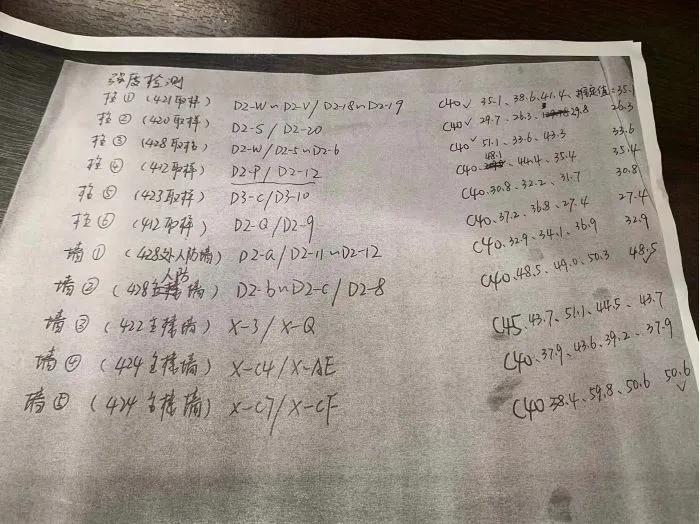 强度检测
柱① (421取样) D2-W~D2-V/D2-18~D2-19 C40✓ 35.1、38.6、41.4、推定值=35.1
柱② (420取样) D2-S/D2-20 C40✓ 29.7、26.3、29.8 26.3
柱③ (428取样) D2-W/D2-5~D2-6 C40✓ 51.1、33.6、43.3 33.6
柱④ (412取样) D2-P/D2-12 C40 48.1、44.4、35.4 35.4
柱⑤ (423取样) D3-C/D3-10 C40、30.8、32.2、31.7 30.8
柱⑥ (412取样) D2-Q/D2-9 C40、37.2、36.8、27.4 27.4
墙① (428外人防墙) D2-a/D2-11~D2-12 C40、32.9、34.1、36.9 32.9
墙② (428人防墙) D2-b~D2-c/D2-8 C40、48.5、49.0、50.3 48.5✓
墙③ (422主楼墙) X-3/X-Q C45、43.7、51.1、44.5、43.7
墙④ (424主楼墙) X-C4/X-AE C40、37.9、43.6、39.2、37.9
墙⑤ (424主楼墙) X-C7/X-CF C40 38.4、59.8、50.6 50.6✓